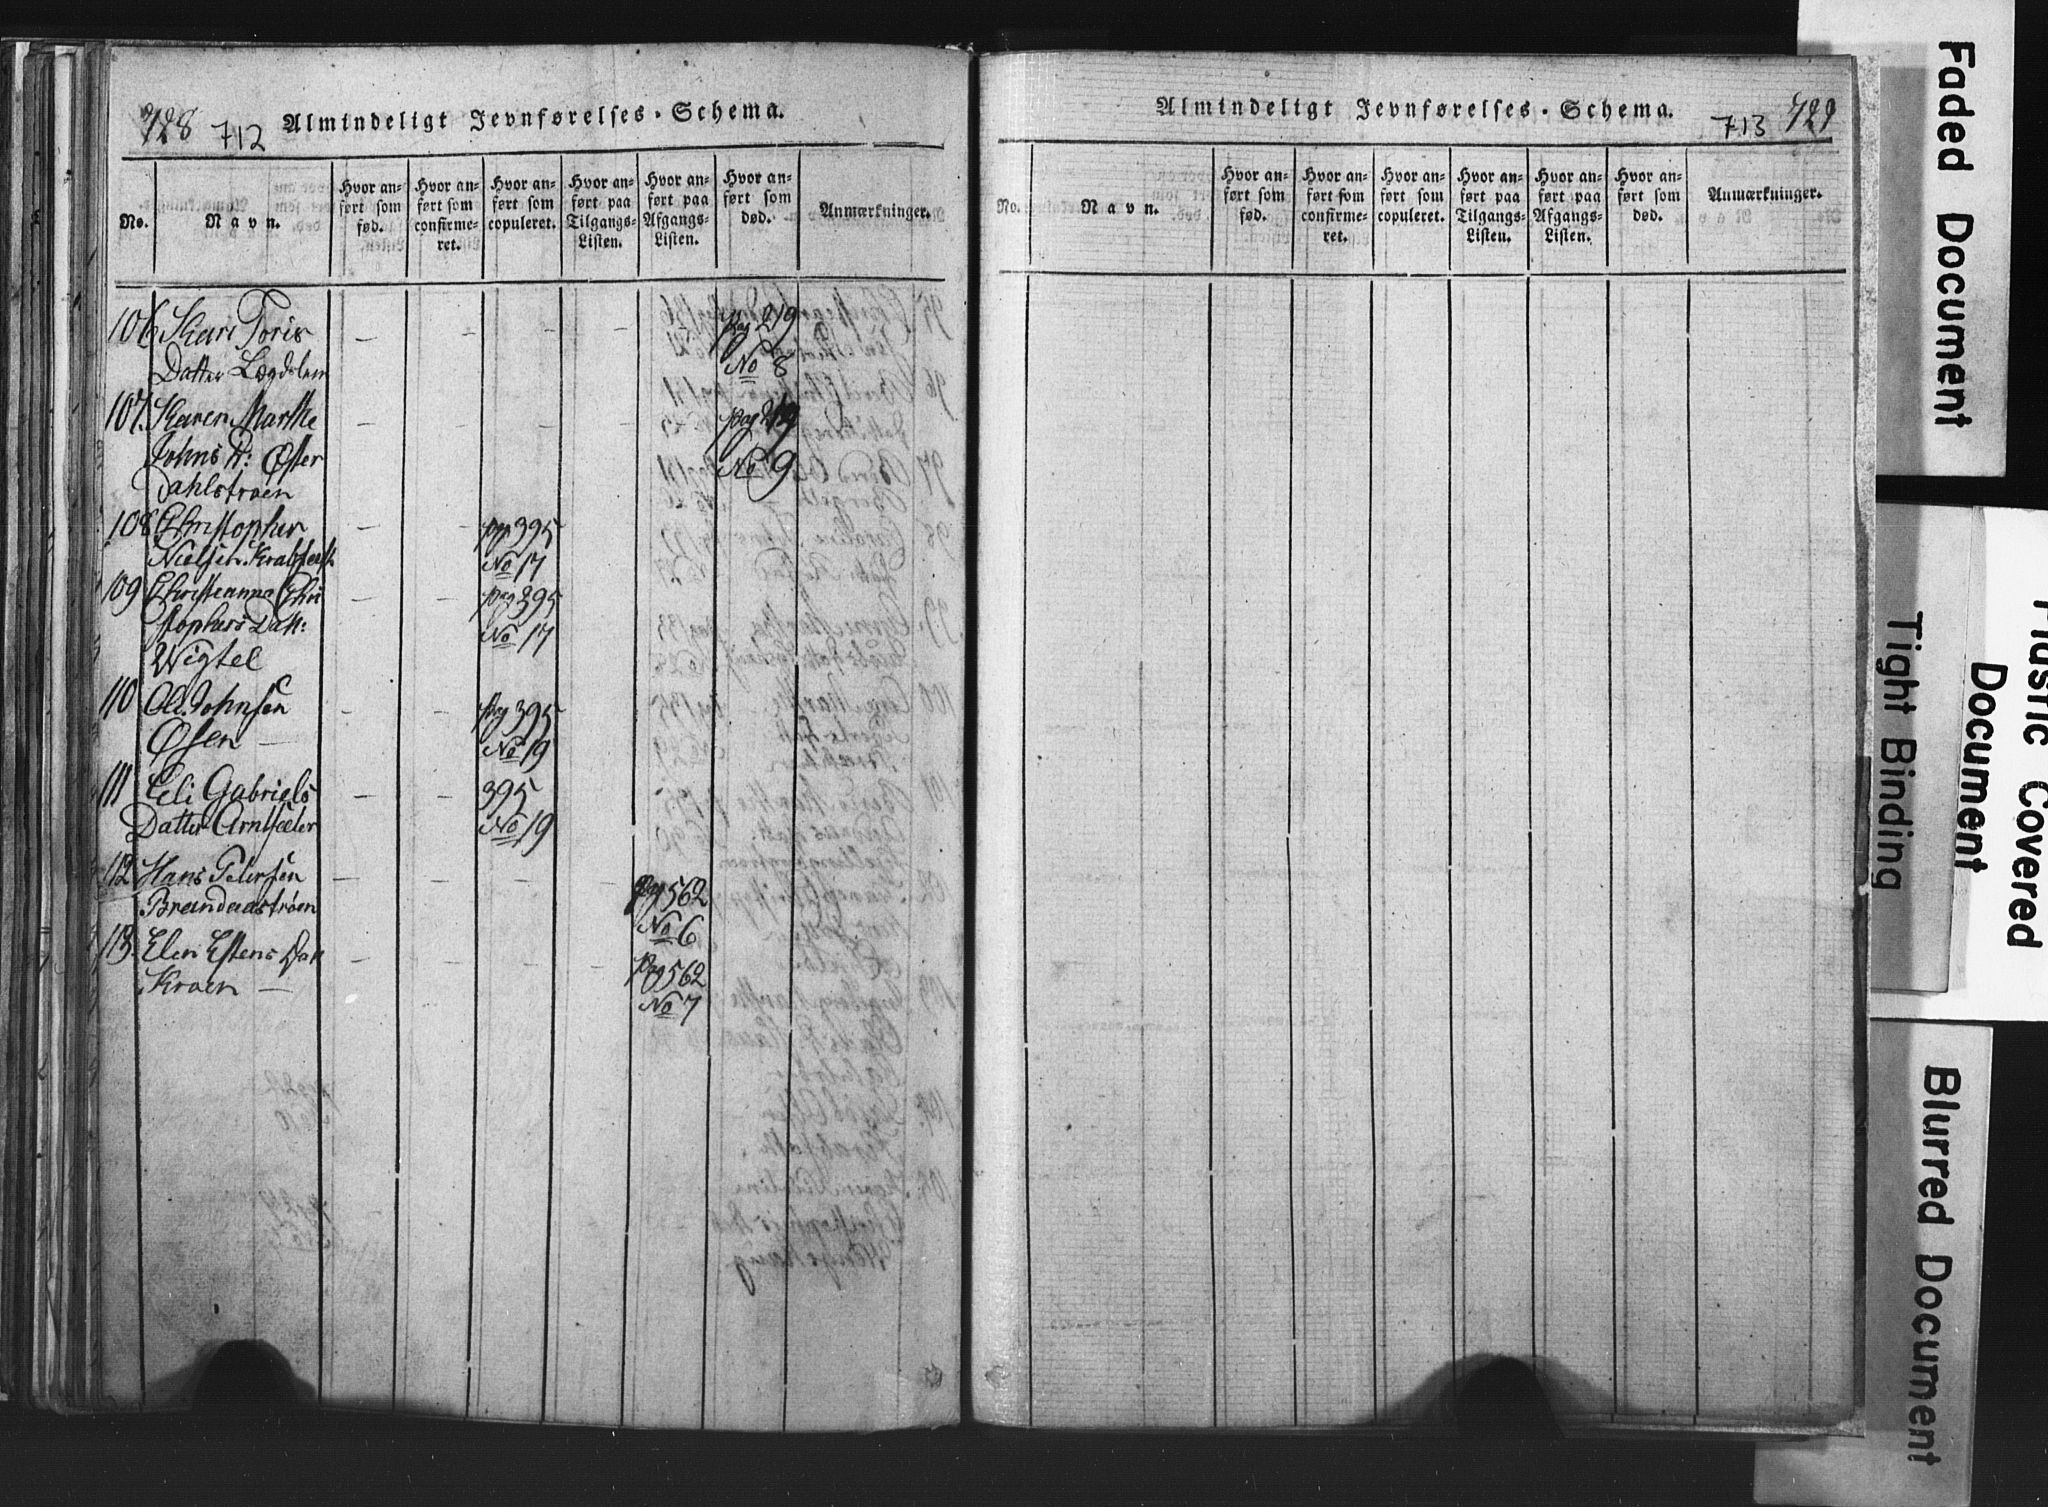 728 712 Almindeligt Jevnførelses-Schema.
No. Navn. Hvor anført som fød. Hvor anført som confirmeret. Hvor anført som copuleret. Hvor anført paa Tilgangs-Listen. Hvor anført paa Afgangs-Listen. Hvor anført som død. Anmærkninger.
106 Kari Toris — — — — — pag 219
Datter Lægdslem No 8
107. Karen Marthe — — — — — pag 219
Johns D: Øster No 9
Dahlstrøen
108 Christopher — — pag 395
Nielsen Krabseth No 17
109 Christianna Chri — — pag 395
stophers Datt: No 17
Wigtel
110 Ole Johnsen — — pag 395
Øsen — No 19
111 Eli Gabriels — — 395
Datter Arntsæter No 19
112 Hans Petersen — — — — pag 562
Brandaastrøen No 6
113. Elen Estens Dat — — — — pag 562
Kroen — No 7
Almindeligt Jevnførelses-Schema. 713 729
No. Navn. Hvor anført som fød. Hvor anført som confirmeret. Hvor anført som copuleret. Hvor anført paa Tilgangs-Listen. Hvor anført paa Afgangs-Listen. Hvor anført som død. Anmærkninger.
Faded Document
Plastic Covered
Document
Tight Binding
Blurred Document